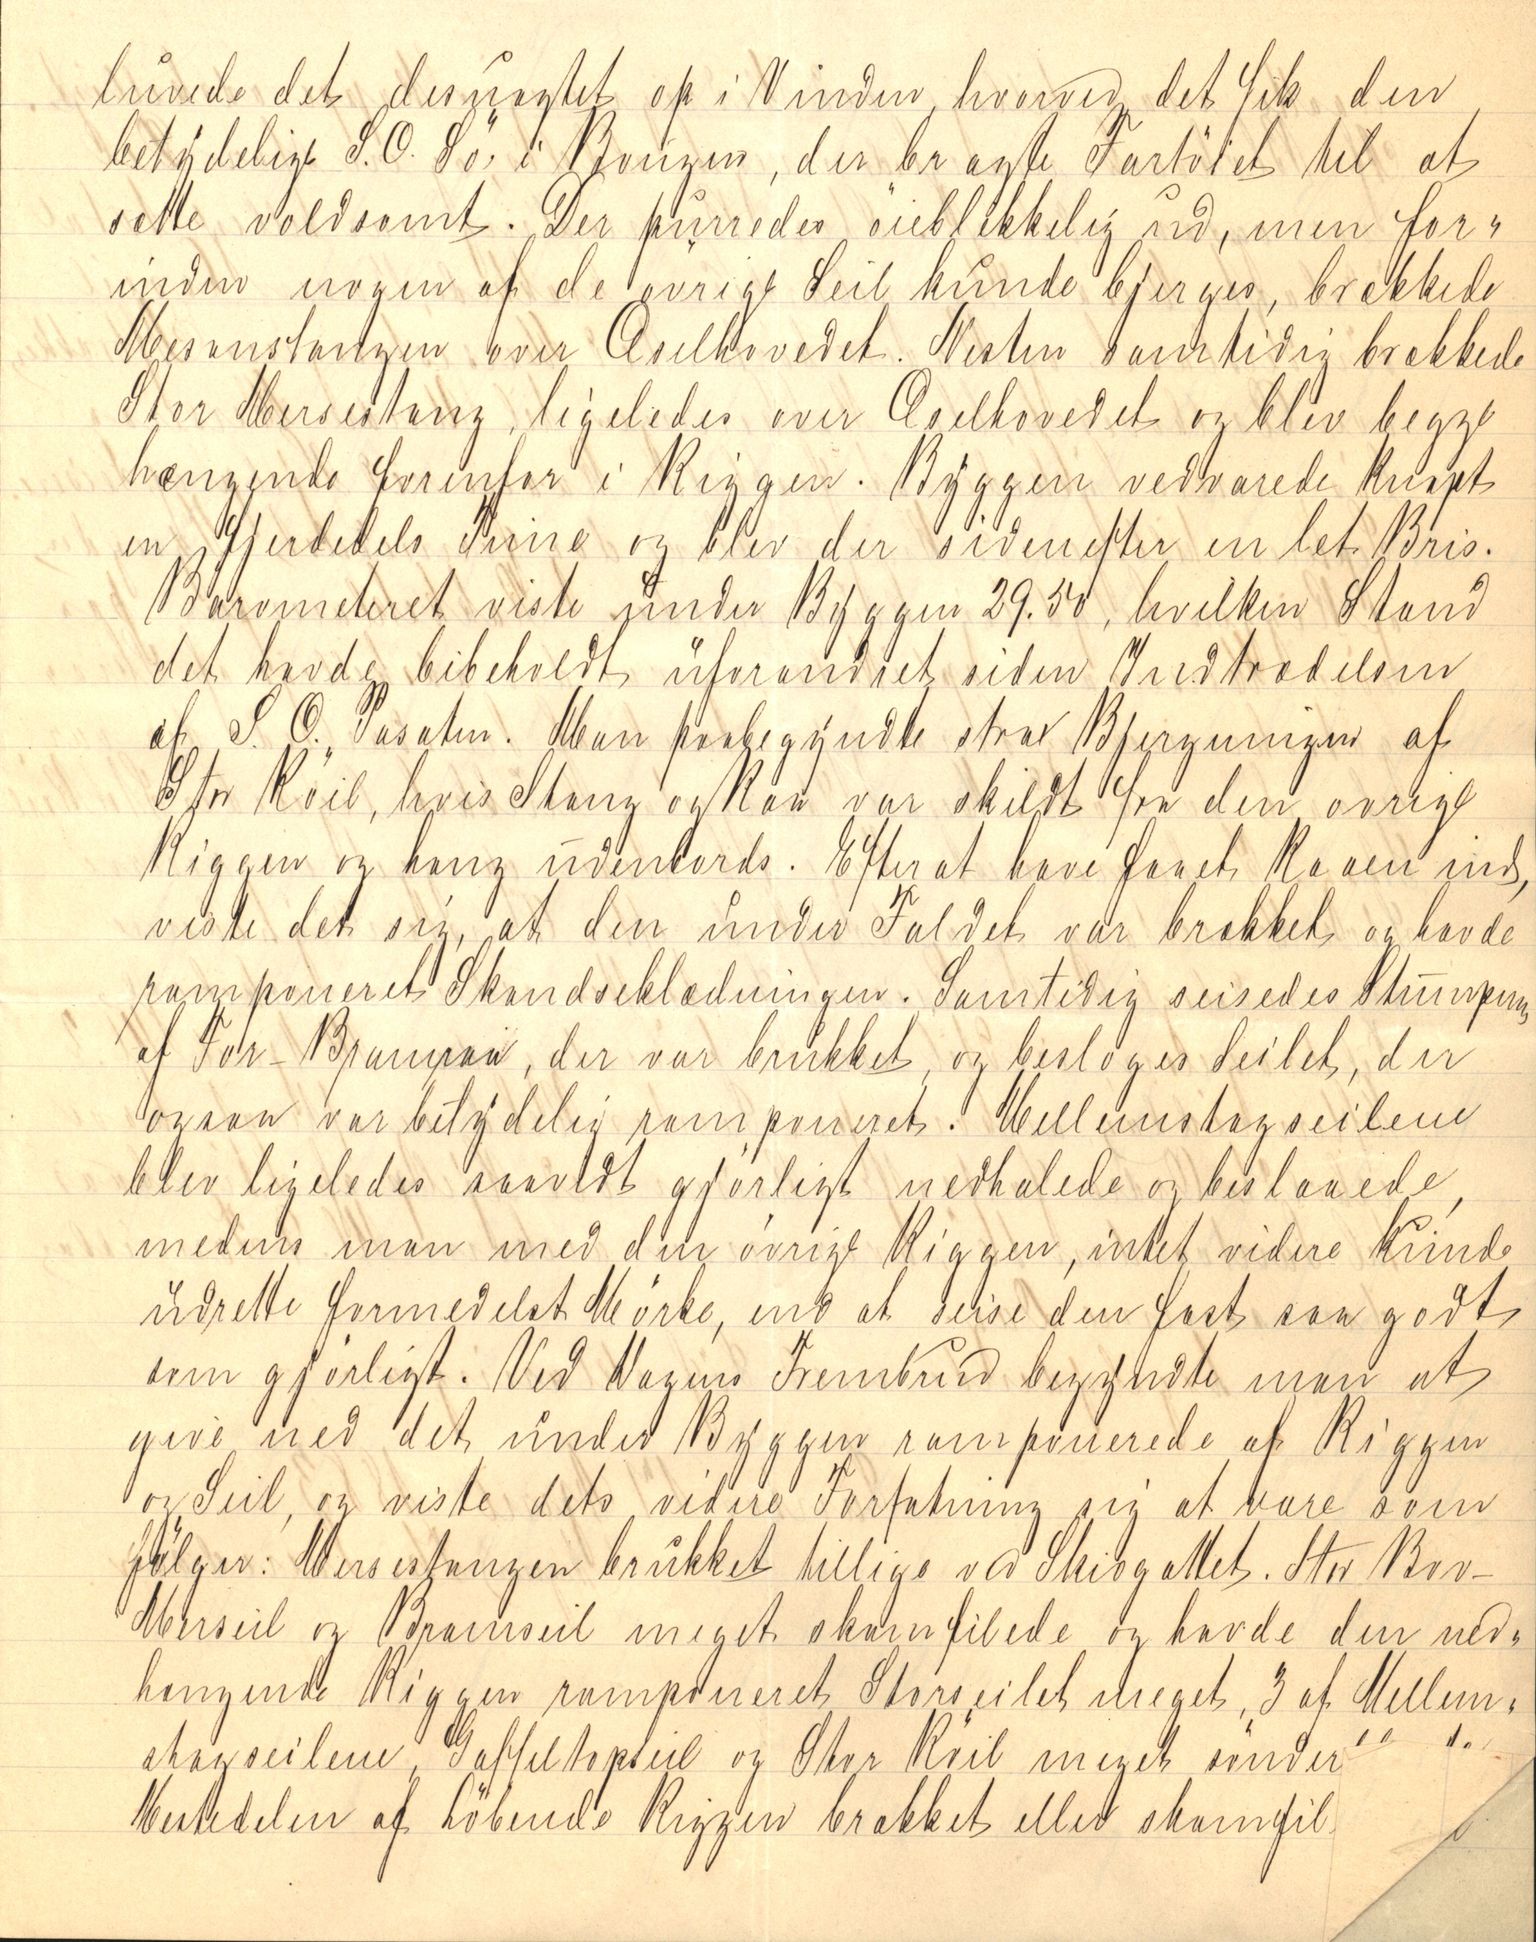 luvede det desuagtet op i Vinden, hvorved det fik den
betydelige S.O. Sö, i Bougen, der bragte Fartöiet til at
sætte voldsomt. Der purredes öieblikkelig ud, men for-
inden nogen af de övrige Seil kunde bjerges, brækkede
Mesanstangen over Æselhovedet. Næsten samtidig brækkede
Stor Mersestang, ligeledes over Æselhovedet og blev begge
hængende forenfor i Riggen. Byggen vedvarede knapt
en Fjerdedels Time og blev der sidenefter en let Bris.
Barometeret viste under Byggen 29.50, hvilken Stand
det havde bibeholdt uforandret siden Indtrædelsen
af S. O. Pasaten. Man paabegyndte strax Bjergningen af
Stor Röil, hvis Stang og Raa var skildt fra den övrige
Riggen og hang udenbords. Efter at have faaet Raaen ind,
viste det sig, at den under Faldet var brækket og havde
ramponeret Skandseklædningen. Samtidig seisedes Stumpen
af For-Bramraa, der var brukket, og besloges Seilet, der
ogsaa var betydelig ramponeret. Mellemstagseilene
blev ligeledes saavidt gjörligt nedhalede og beslaaede,
medens man med den övrige Riggen, intet videre kunde
udrette formedelst Mörke, end at seise den fast saa godt
som gjörligt. Ved Dagens Frembrud begyndte man at
give ned det under Byggen ramponerede af Riggen
og Seil, og viste dets videre Forfatning sig at være som
fölger: Mersestangen brukket tillige ved Skivgattet. Stor Bov-
Merseil og Bramseil meget skamfilede og havde den ned-
hængende Riggen ramponeret Storseilet meget, 3 af Mellem-
stagseilene, Gaffeltopseil og Stor Röil meget sönder
Mestedelen af Löbende Riggen brækket eller skamfil